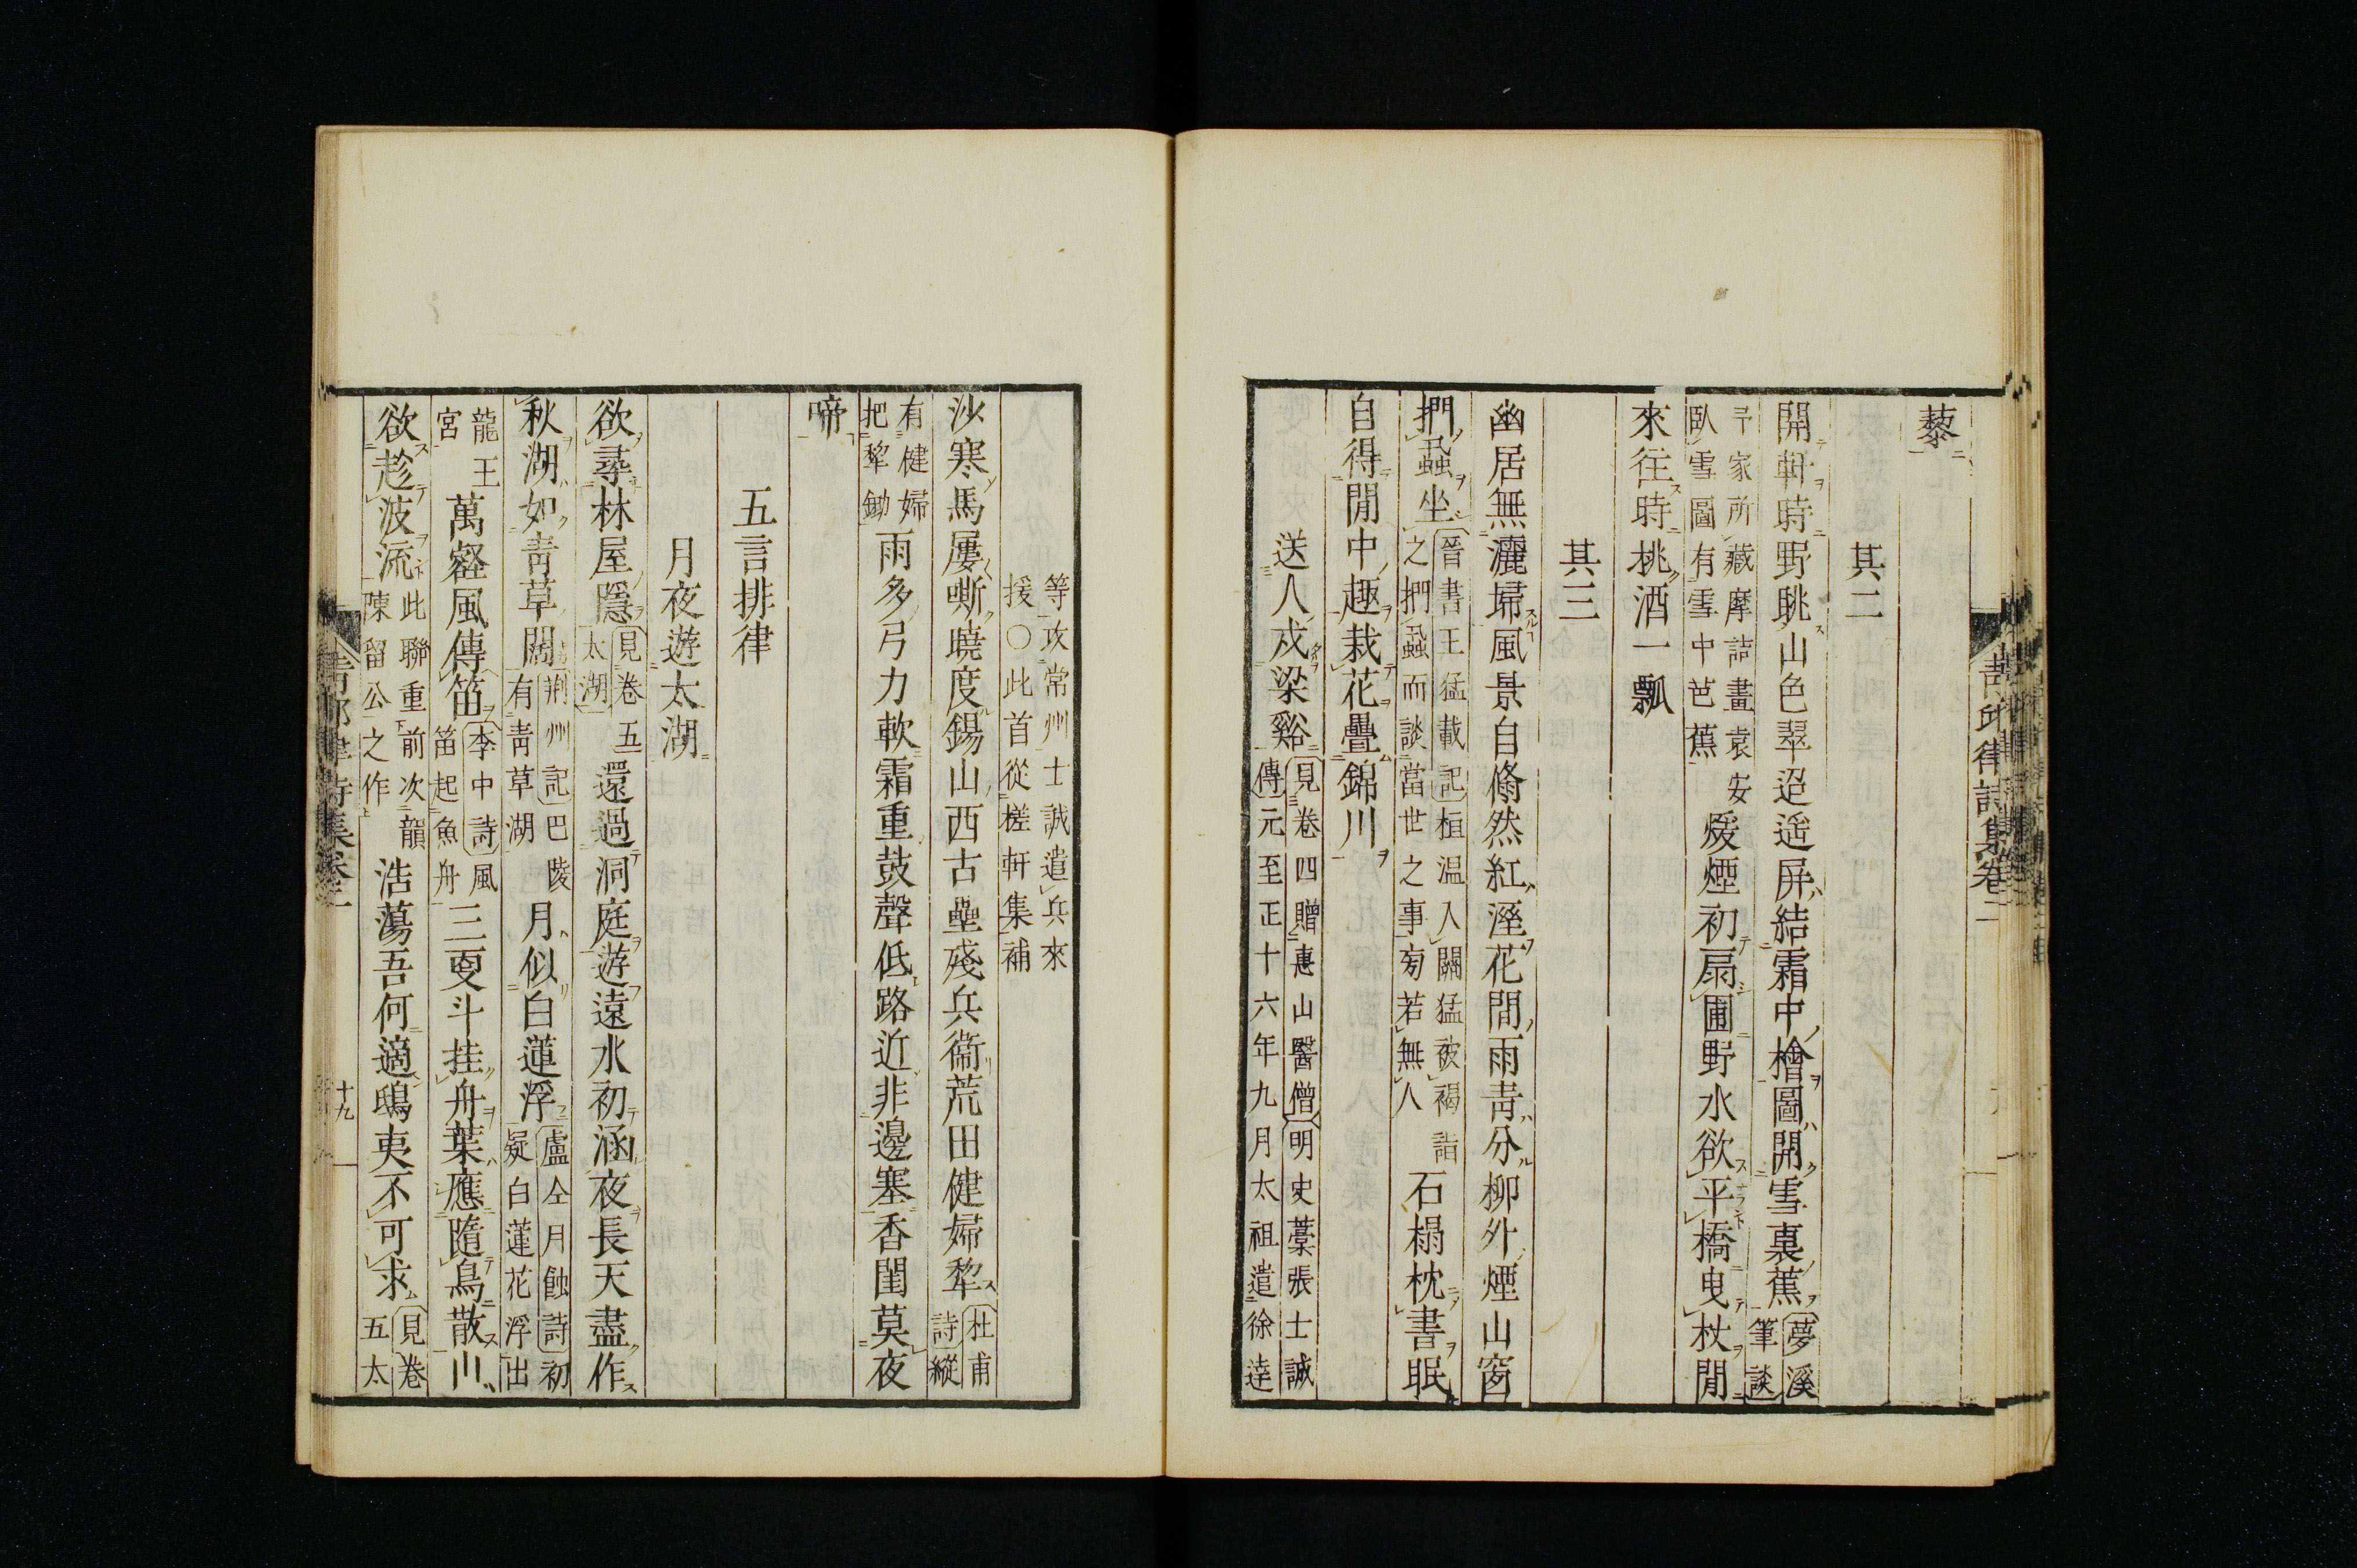 藜
其二
開軒時野眺山色翠迢遥屏結霜中檜圖開雪裏蕉
夢溪
筆談
予家所藏摩詰畫袁安
臥雪圖有雪中芭蕉
煖煙初扇圃野水欲平橋曳杖閒
來往時挑酒一瓢
其三
幽居無灑埽風景自翛然紅溼花間雨靑分柳外煙山窗
捫蝨坐
晉書王猛載記桓温入關猛被褐詣
之捫蝨而談當世之事旁若無人
石榻枕書眠
自得閒中趣栽花疊錦川
送人戍梁谿
見卷四贈惠山醫僧明史藁張士誠
傳元至正十六年九月太祖遣徐達
等攻常州士誠遣兵來
援○此首從槎軒集補
沙寒馬屢嘶曉度錫山西古壘殘兵衞荒田健婦犂
杜甫
詩縱
有健婦
把犂鋤
雨多弓力軟霜重鼓聲低路近非邊塞香閨莫夜
啼
五言排律
月夜遊太湖
欲尋林屋隱
見卷五
太湖
還過洞庭遊遠水初涵夜長天盡作
秋湖如靑草闊
荆州記巴陵
有靑草湖
月似白蓮浮
盧仝月蝕詩初
疑白蓮花浮出
龍王
宮
萬壑風傳笛
李中詩風
笛起魚舟
三更斗挂舟葉應隨鳥散川
欲趁波流
此聯重前次韻
陳留公之作
浩蕩吾何適鴟夷不可求
見卷
五太
靑邱律詩集卷二
十九